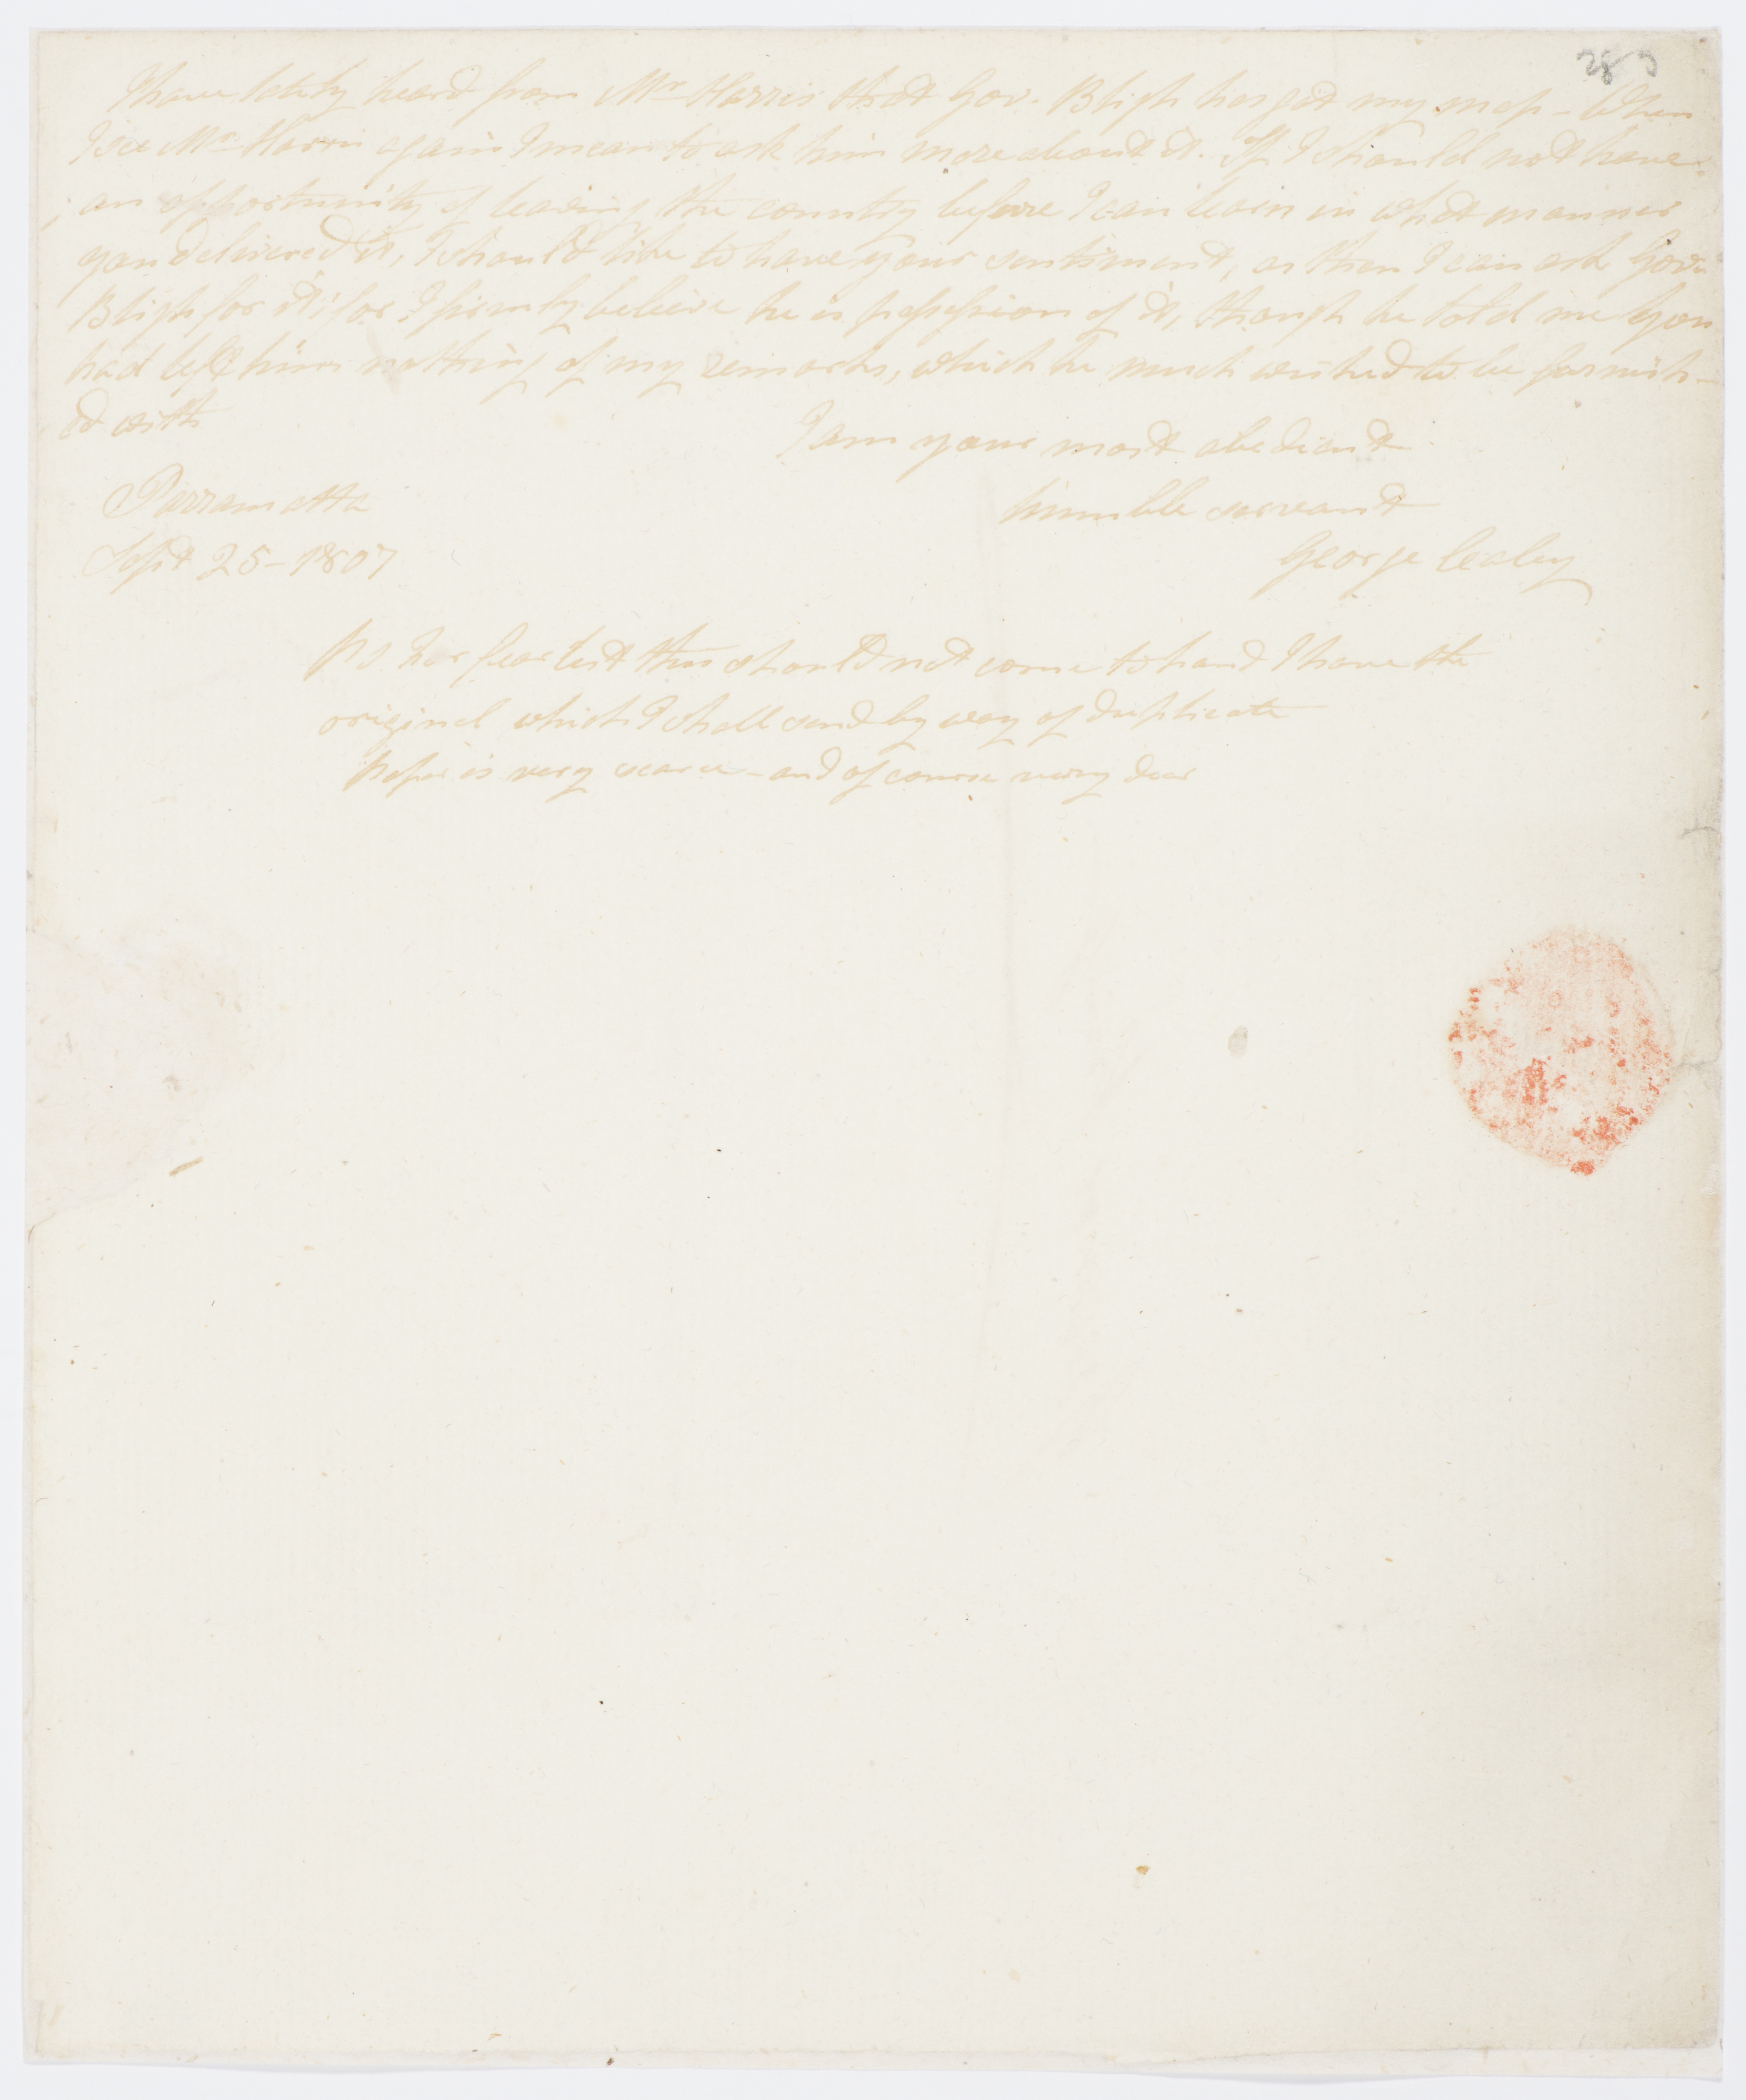 283
I have lately heard from Mr Harris that Gov. Bligh has got my map – When
I see Mr Harris again I mean to ask him more about it. If I should not have
an opportunity of leaving the country before I can learn in what manner
you delivered it, I should like to have your sentiment, as then I can ask Gov.
Bligh for it; for I firmly believe he is possession of it, though he told me you
had left him nothing of my remarks, which he much wished to be furnish-
ed with
I am your most obedient
humble servant
George Caley
Parramatta
Sept 25 – 1807
PS. For fear lest this should not come to hand I have the
original which I shall send by way of duplicate
Paper is very scarce – and of course very dear